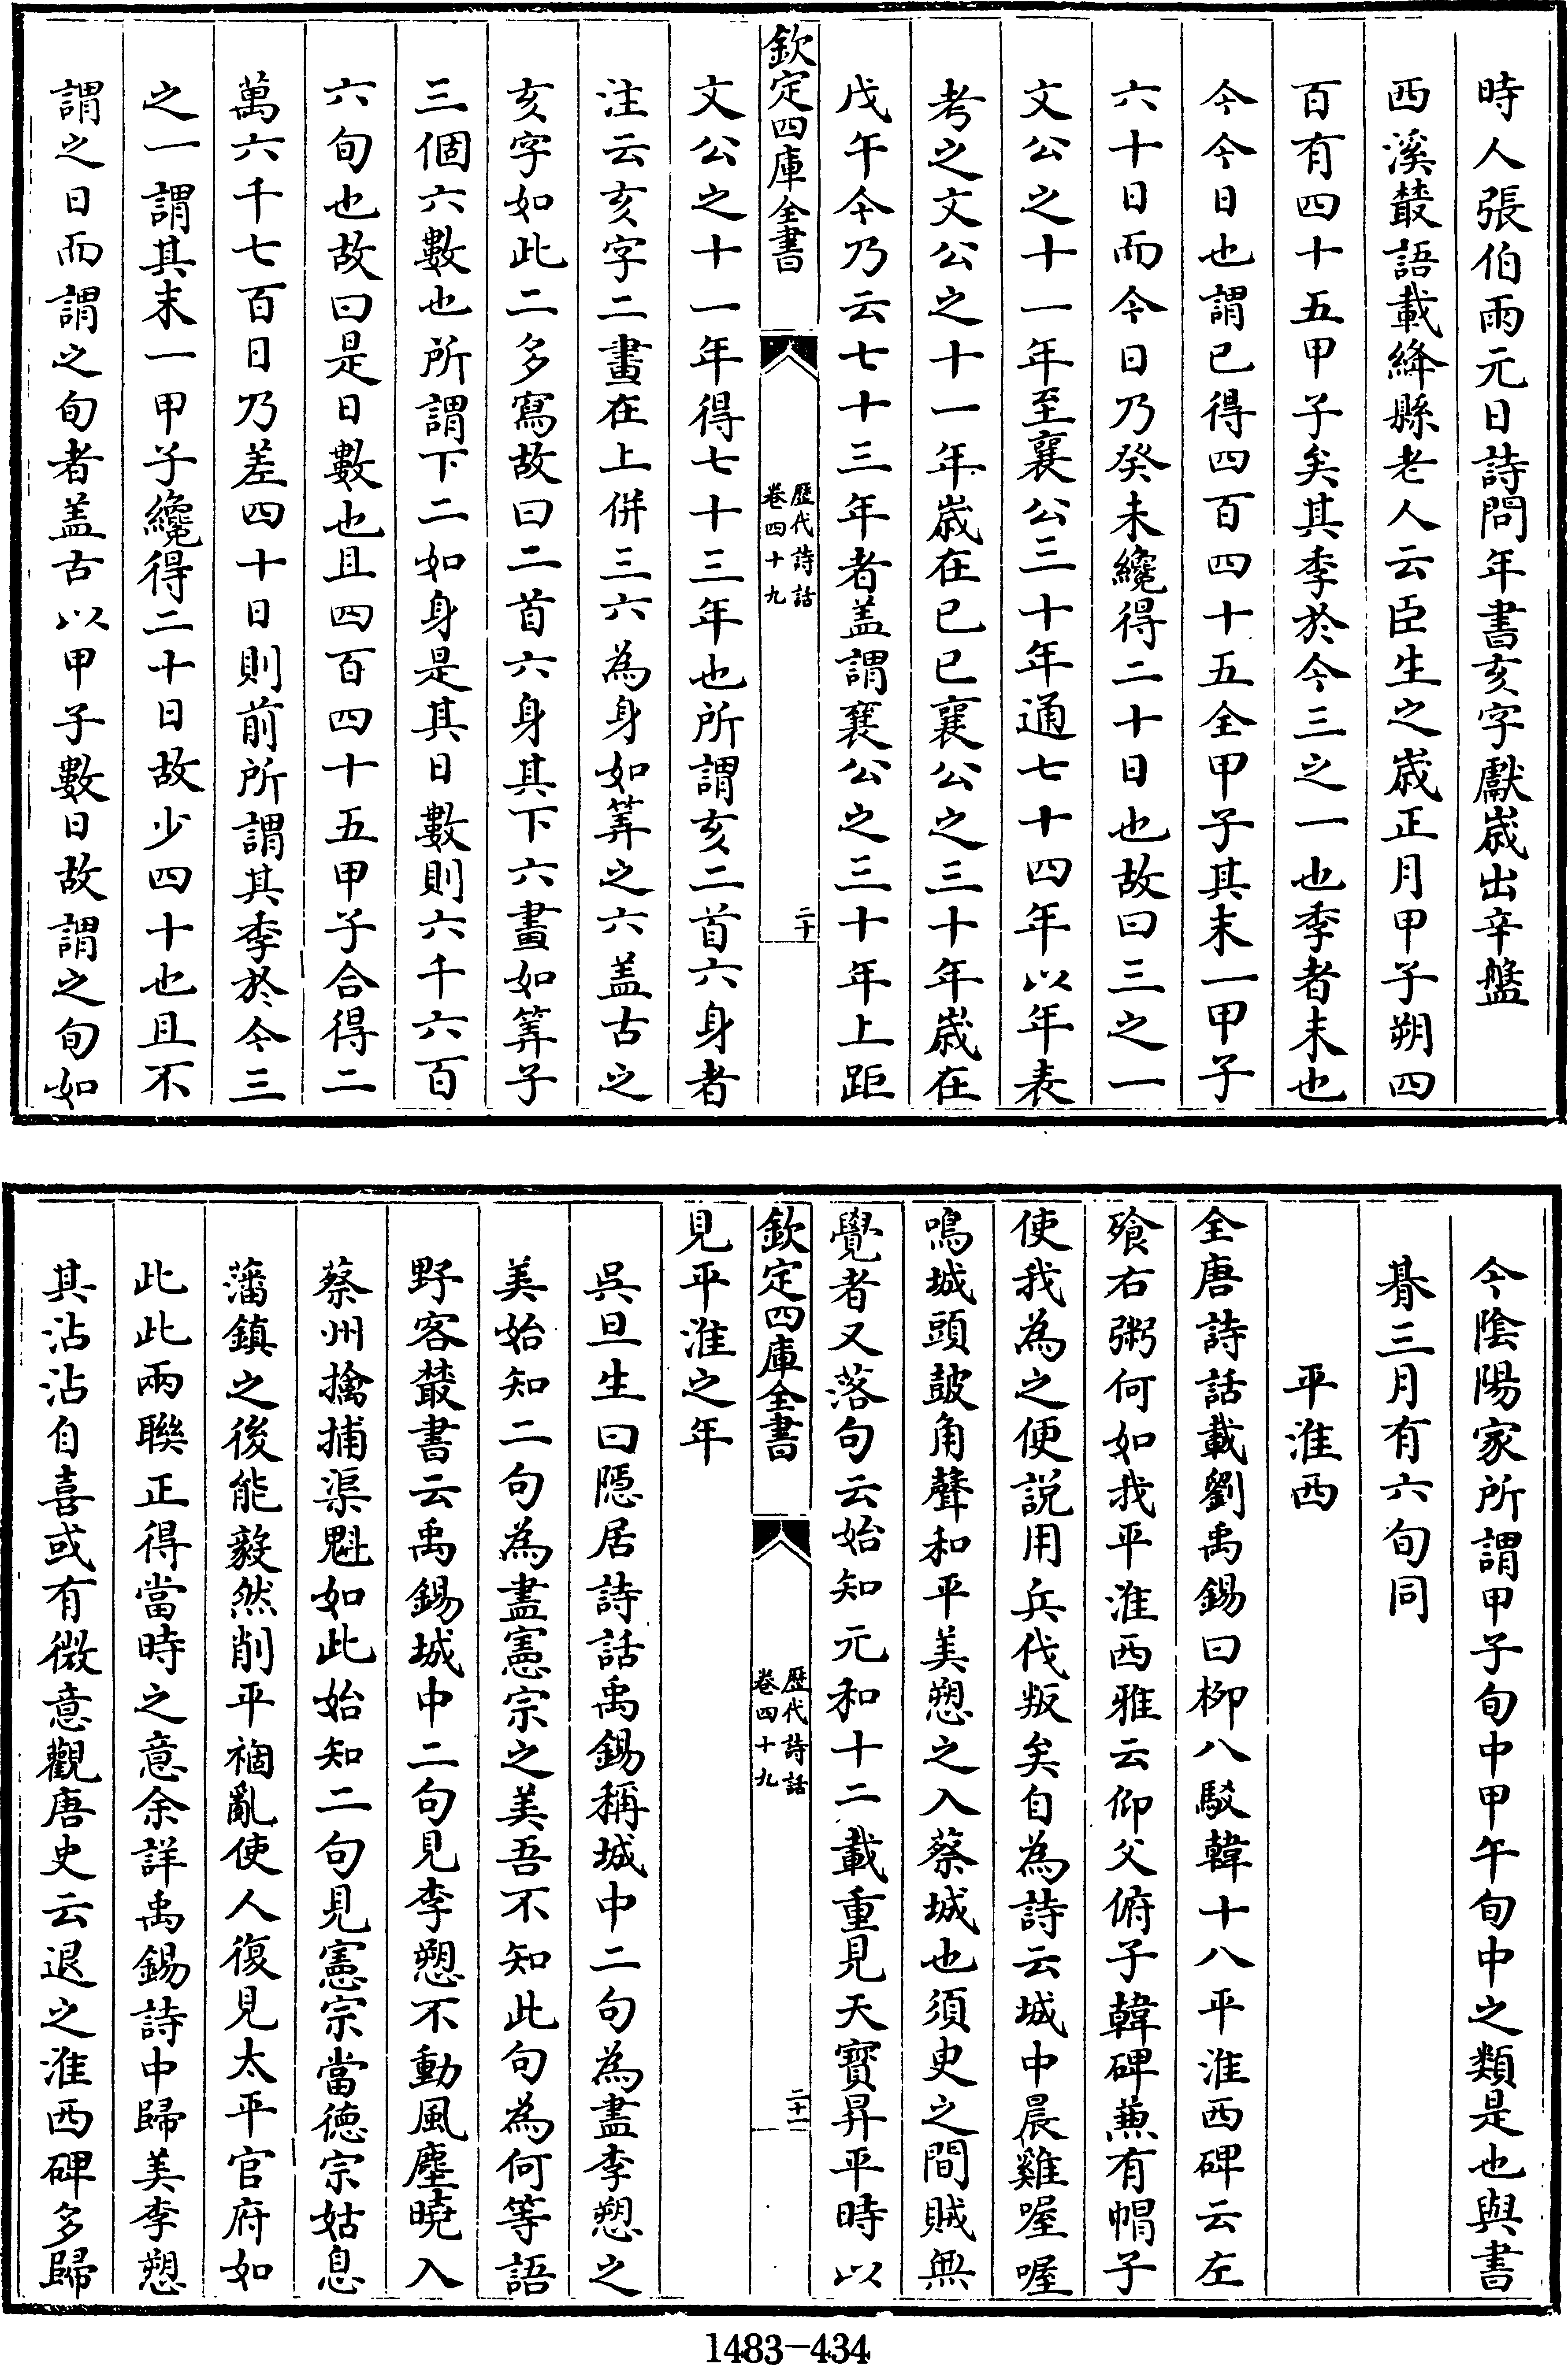 時人張伯雨元日詩問年書亥字獻嵗出辛盤
西溪叢語載絳縣老人云臣生之嵗正月甲子朔四
百有四十五甲子矣其季於今三之一也季者末也
今今日也謂已得四百四十五全甲子其末一甲子
六十日而今日乃癸未纔得二十日也故曰三之一
文公之十一年至襄公三十年通七十四年以年表
考之文公之十一年嵗在已巳襄公之三十年嵗在
戊午今乃云七十三年者盖謂襄公之三十年上距
欽定四庫全書
歴代詩話
卷四十九
二十
文公之十一年得七十三年也所謂亥二首六身者
注云亥字二畫在上併三六為身如筭之六盖古之
亥字如此二多寫故曰二首六身其下六畫如筭子
三個六數也所謂下二如身是其日數則六千六百
六旬也故曰是日數也且四百四十五甲子合得二
萬六千七百日乃差四十日則前所謂其季於今三
之一謂其末一甲子纔得二十日故少四十也且不
謂之日而謂之旬者盖古以甲子數日故謂之旬如
今陰陽家所謂甲子旬中甲午旬中之類是也與書
朞三月有六旬同
平淮西
全唐詩話載劉禹錫曰栁八駁韓十八平淮西碑云左
飱右粥何如我平淮西雅云仰父俯子韓碑兼有帽子
使我為之便説用兵伐叛矣自為詩云城中晨雞喔喔
鳴城頭皷角聲和平美愬之入蔡城也須史之間賊無
覺者又落句云始知元和十二載重見天寳昇平時以
欽定四庫全書
歴代詩話
卷四十九
二十一
見平淮之年
吳旦生曰隱居詩話禹錫稱城中二句為盡李愬之
美始知二句為盡憲宗之美吾不知此句為何等語
野客叢書云禹錫城中二句見李愬不動風塵曉入
蔡州擒捕渠魁如此始知二句見憲宗當徳宗姑息
藩鎮之後能毅然削平禍亂使人復見太平官府如
此此兩聯正得當時之意余詳禹錫詩中歸美李愬
其沾沾自喜或有微意觀唐史云退之淮西碑多歸
1483-434